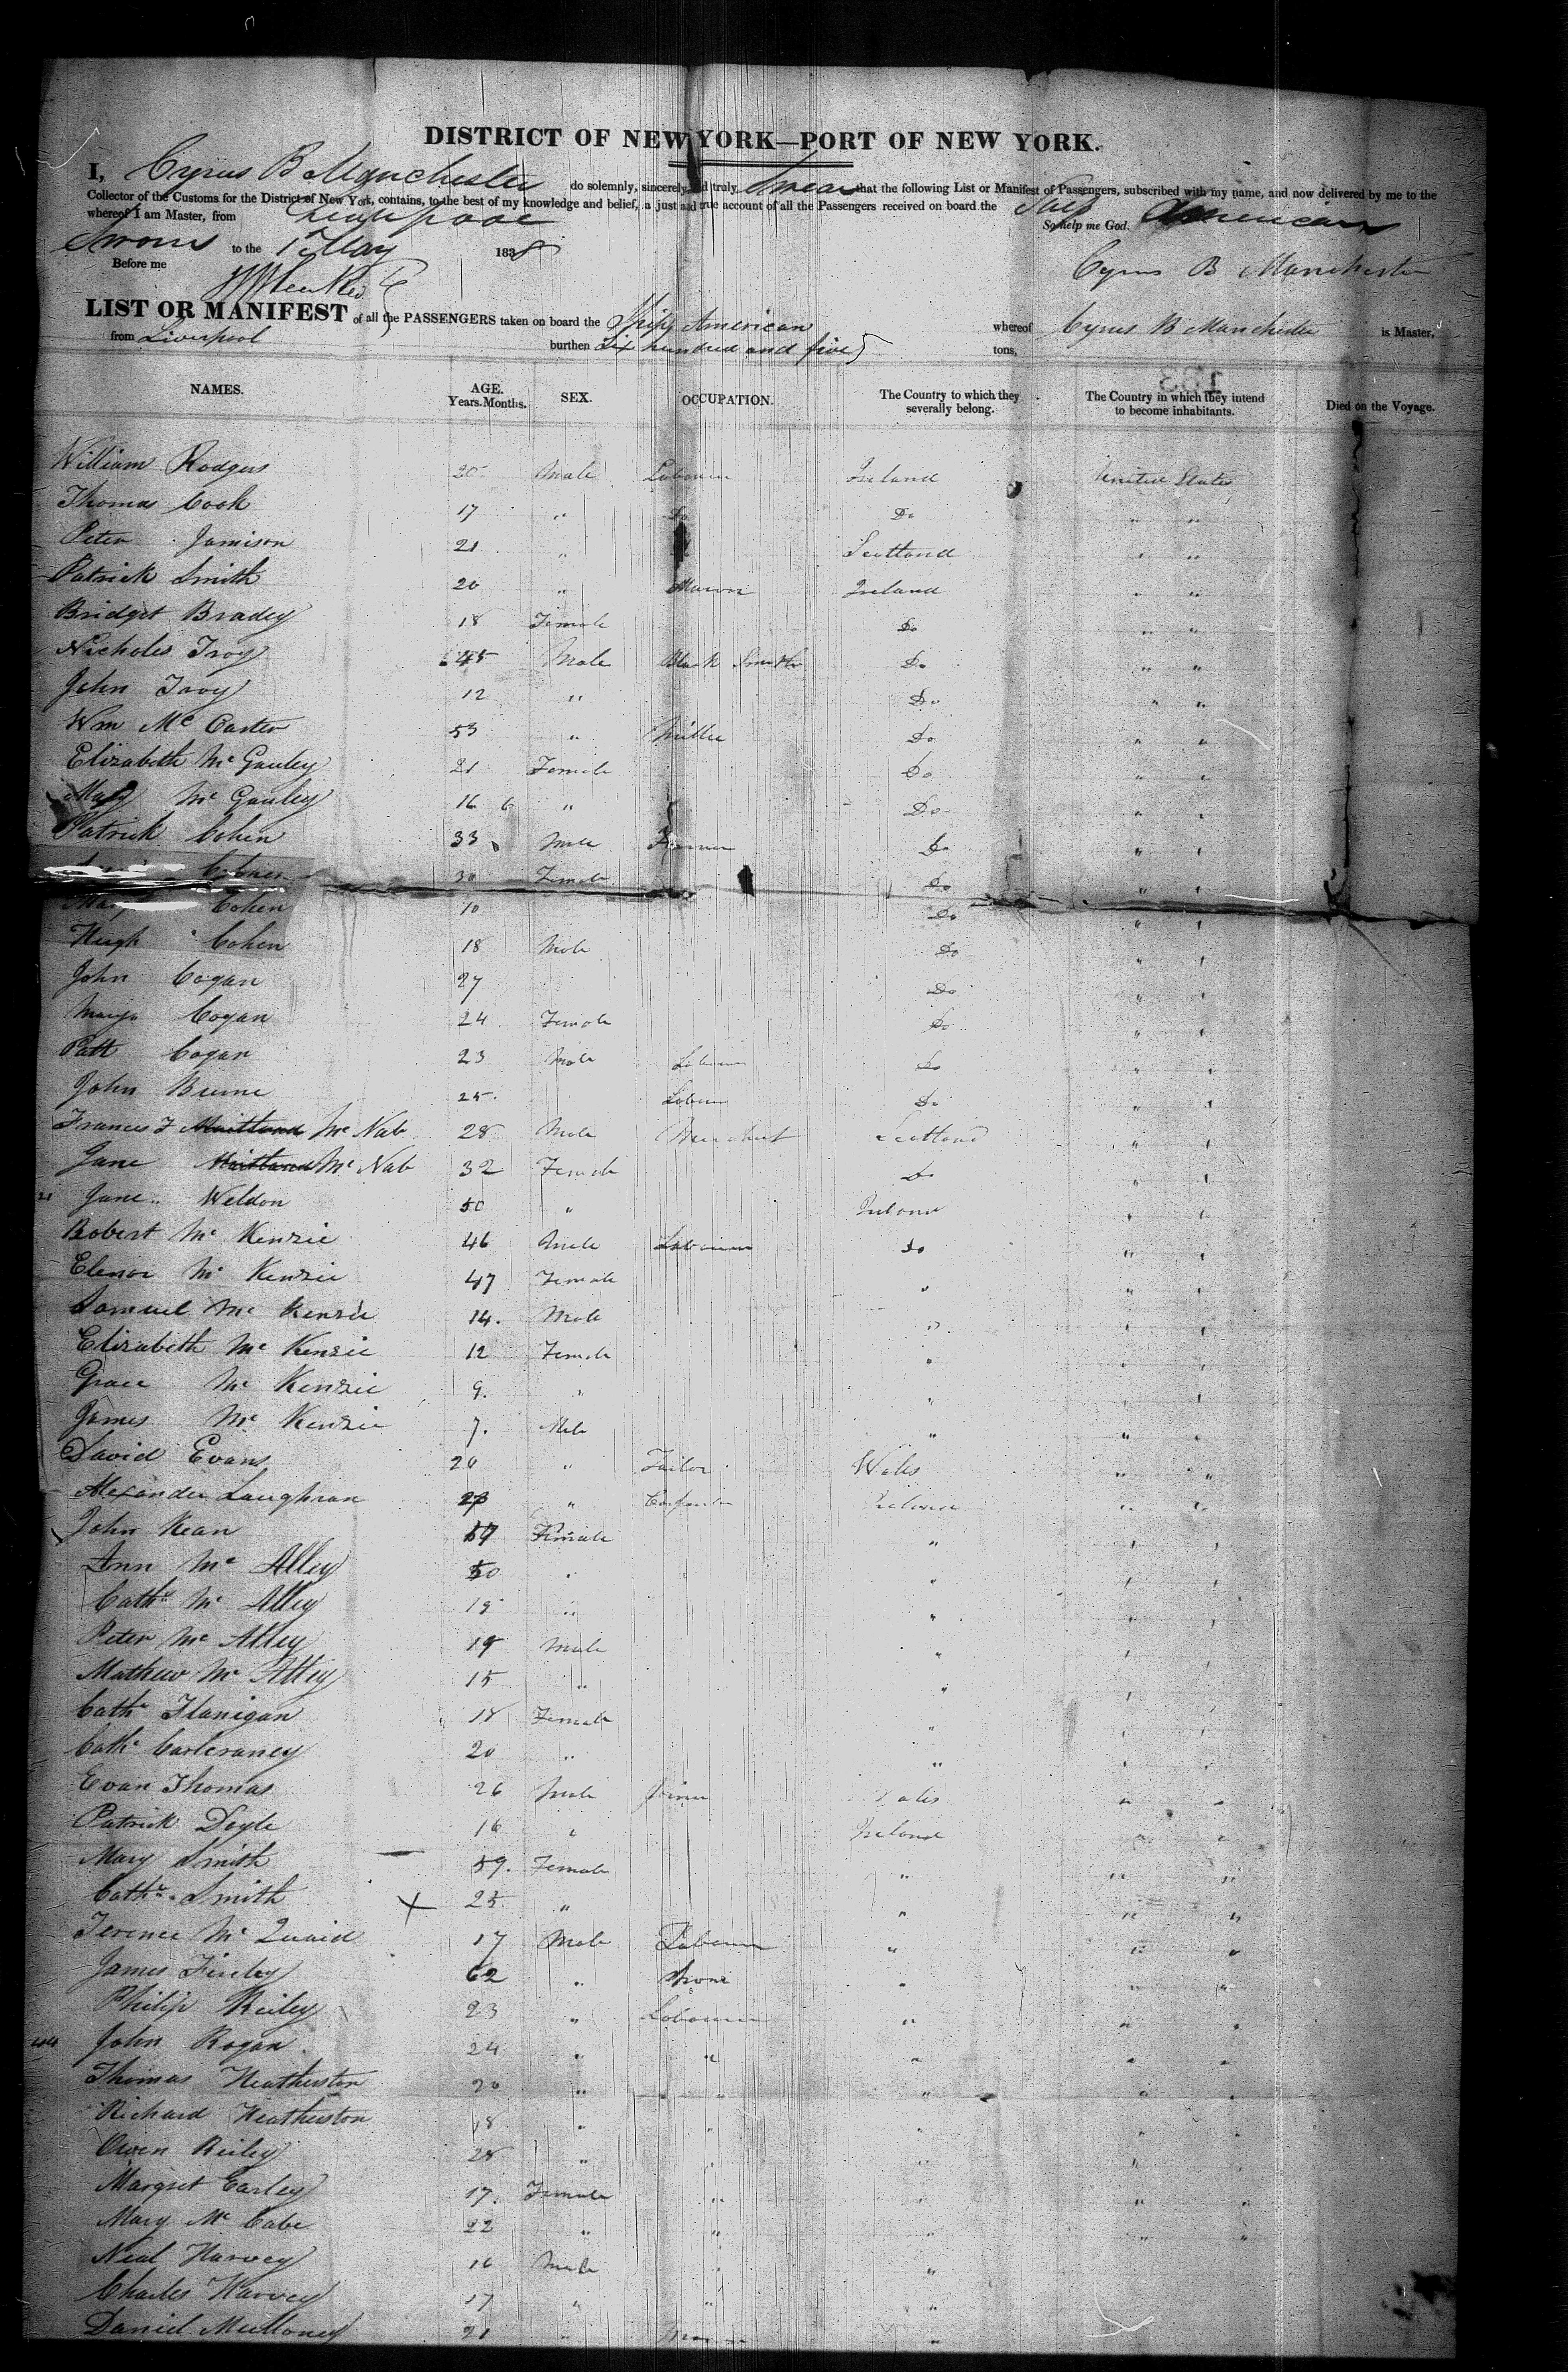 DISTRICT OF NEW YORK—PORT OF NEW YORK.
I, Cyrus B Manchester do solemnly, sincerely and truly, swear that the following List or Manifest of Passengers, subscribed with my name, and now delivered by me to the
Collector of the Customs for the District of New York, contains, to the best of my knowledge and belief, a just and true account of all the Passengers received on board the Ship American
whereof I am Master, from Liverpool So help me God.
Sworn to the 17 May 1838
Before me
Cyrus B Manchester
LIST OR MANIFEST of all the PASSENGERS taken on board the Ship American whereof Cyrus B Manchester is Master,
from Liverpool burthen Six hundred and five tons,
NAMES. AGE. Years. Months. SEX. OCCUPATION. The Country to which they severally belong. The Country in which they intend to become inhabitants. Died on the Voyage.
William Rodgers 20 Male Labourer Ireland United States
Thomas Cook 17 " Do Do " "
Peter Jamison 21 " Scotland " "
Patrick Smith 20 " Mason Ireland " "
Bridget Bradey 18 Female Do " "
Nicholas Troy 45 Male Black Smith Do " "
John Troy 12 " Do " "
Wm Mc Carter 53 " Miller Do " "
Elizabeth Mc Gauley 21 Female Do " "
Mary Mc Gauley 16 6 " Do " "
Patrick Cohen 33 Male Farmer Do " "
Cohen 30 Female Do " "
Cohen 10 Do " "
Hugh Cohen 18 Male Do " "
John Cogan 27 Do " "
Cogan 24 Female Do " "
Patt Cogan 23 Male Labourer Do " "
John Burne 25 Labourer Do " "
Frances F Maitland Mc Nab 28 Male Merchant Scotland " "
Jane Maitland Mc Nab 32 Female Do " "
21 Jane Weldon 50 " Ireland " "
Robert Mc Kenzie 46 Male Labourer Do " "
Elenor Mc Kenzie 47 Female " " "
Samuel Mc Kenzie 14 Male " " "
Elizabeth Mc Kenzie 12 Female " " "
Grace Mc Kenzie 9 " " " "
James Mc Kenzie 7 Male " " "
David Evans 20 " Tailor Wales " "
Alexander Laughran " Carpenter Ireland " "
John Kean Female " " "
Ann Mc Alley 50 " " " "
Cathe Mc Alley 19 " " " "
Peter Mc Alley 19 Male " " "
Mathew Mc Alley 15 " " "
Cathe Flanigan 18 Female " " "
Cathe 20 " " " "
Evan Thomas 26 Male Joiner Wales " "
Patrick Doyle 16 " Ireland " "
Mary Smith 59 Female " " "
Cathe Smith 25 " " " "
Terence Mc Quaid 17 Male Labourer " " "
James Finley 62 " None " " "
Philip Reiley 23 " Labourer " " "
44 John Rogan 24 " " " " "
Thomas Heatherston 20 " " " " "
Richard Heatherston 18 " " " " "
Owen Reiley 28 " " " "
Margret Earley 17 Female " " " "
Mary Mc Cabe 22 " " " " "
Neal Harvey 16 Male " "
Charles Harvey 17 " " "
Daniel Mulloney 21 " "